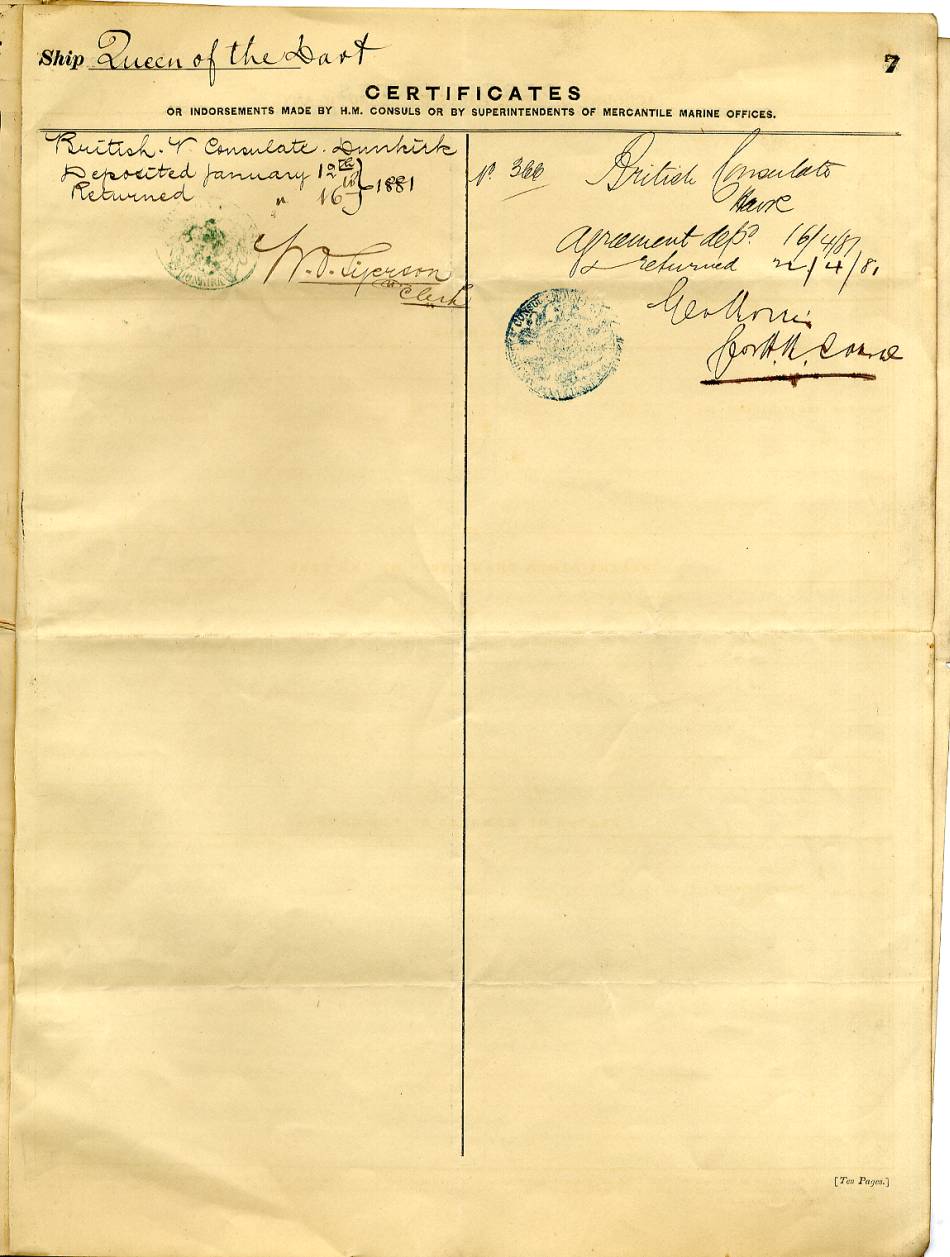 Ship Queen of the Dart
7
CERTIFICATES
OR INDORSEMENTS MADE BY H.M. CONSULS OR BY SUPERINTENDENTS OF MERCANTILE MARINE OFFICES.
British. V. Consulate. Dunkirk
Deposited January 12th
Returned " 16th } 1881
W. O.
Clerk
No. 366
British Consulate
Havre
Agreement depd. 16/4/81
& returned 22/4/81
for H.M. Consul
[Ten Pages.]